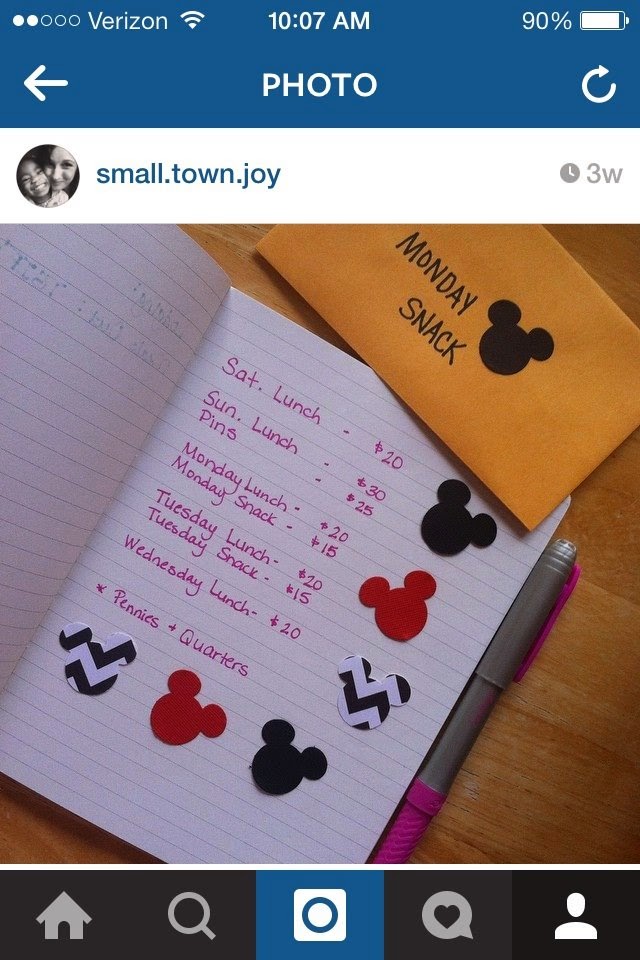 Verizon 10:07 AM 90%
PHOTO
small.town.joy 3w
MONDAY
SNACK
Sat. Lunch - $20
Sun. Lunch - $30
Pins - $25
Monday Lunch - $20
Monday Snack - $15
Tuesday Lunch - $20
Tuesday Snack - $15
Wednesday Lunch - $20
* Pennies + Quarters